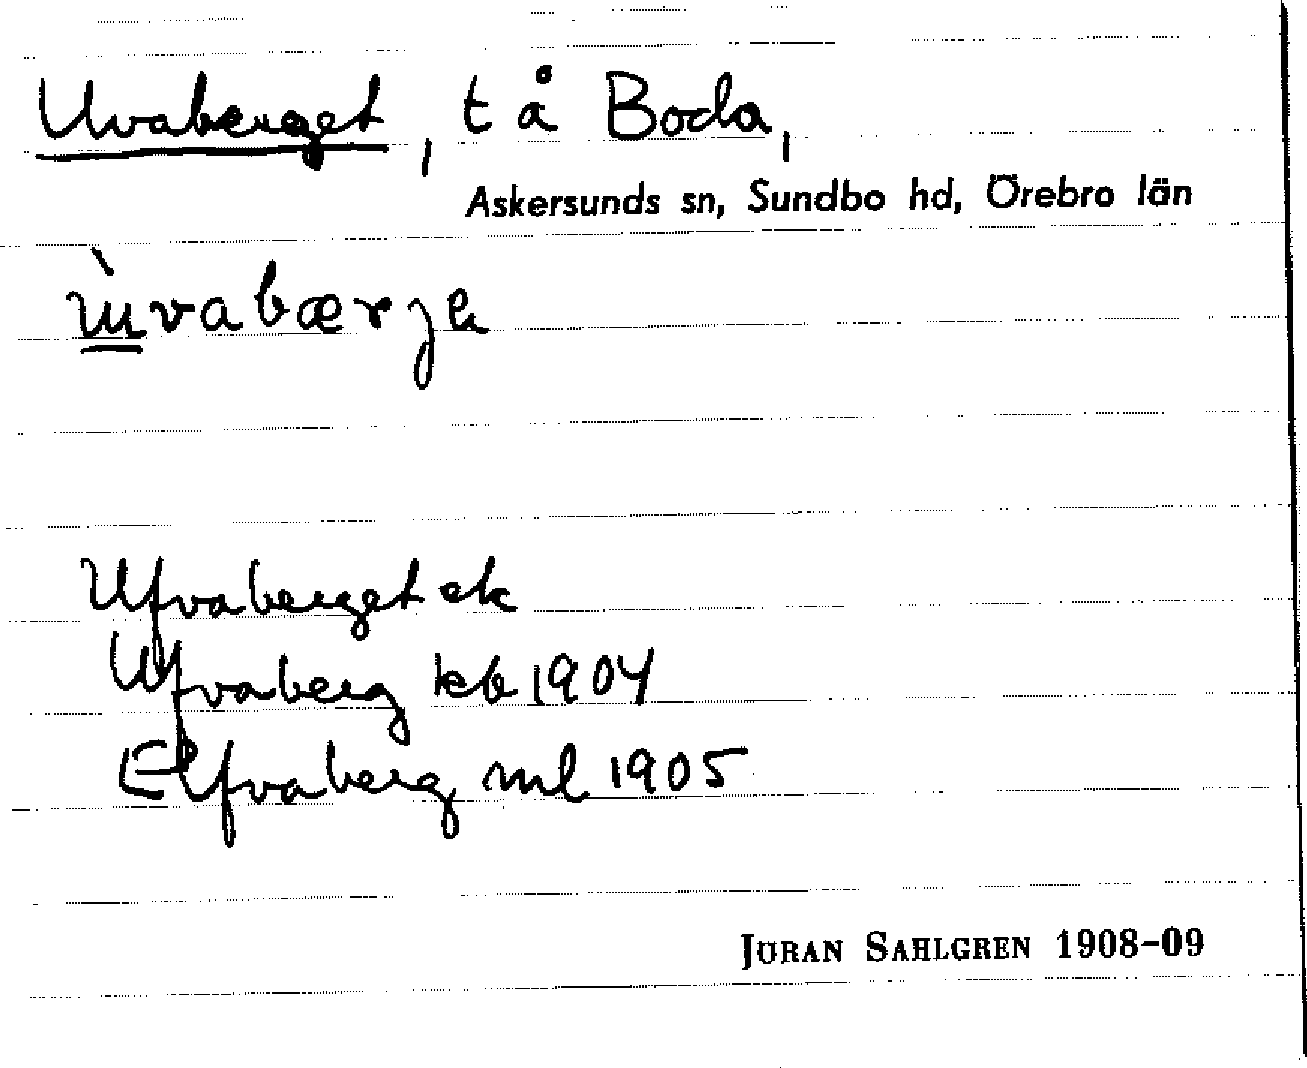 Uvaberget, t å Boda,
Askersunds sn, Sundbo hd, Örebro län
ùvabærje
Ufvaberget ek
Ufvaberg kb 1904
Elfvaberg ml 1905
JÖRAN SAHLGREN 1908-09